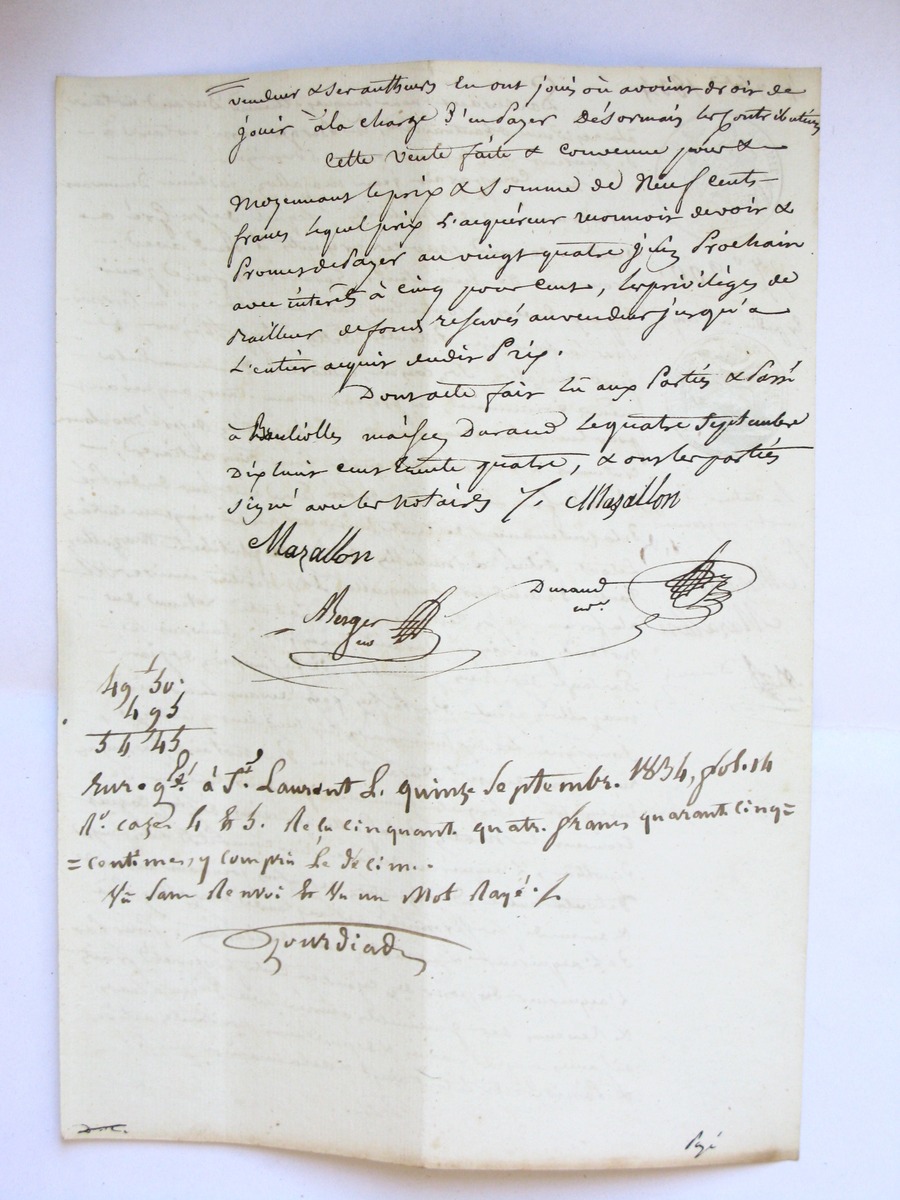 vendeur & ses autheurs En ont jouis où avoient droit de
jouir à la charge d'en payer désormais les Contributions
Cette vente faite & convenue pour &
Moyennant le prix & somme de Neuf cents
francs lequel prix L'acquéreur reconnoit devoir &
Promet de Payer au vingt quatre juin Prochain
avec intérêts à cinq pour Cent, les privilèges de
Bailleur de fonds réservés au vendeur jusqu'a
L'entier acquit dudit Prix.
Dont acte fait Lû aux Parties & Passé
à maison Durand Le quatre Septembre
Dix huit cent trente quatre, & ont les parties
signé avec les notaires /. Mazallon
Mazallon
Durand
nre
Berger
49 50
4 95
54 45
Enregté à St. Laurent Le quinze Septembre 1834, fol. 14
Ro. cazes 4 et 5. Reçu cinquante quatre francs quarante cinq=
=centimes y compris Le décime.
Vu Sans Renvoi et Vu un Mot Rayé./.
Payé